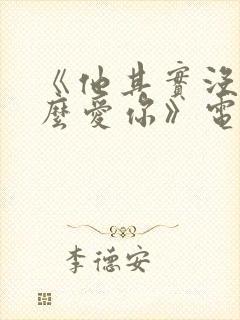 《他其實沒
麼愛你》電
李德安